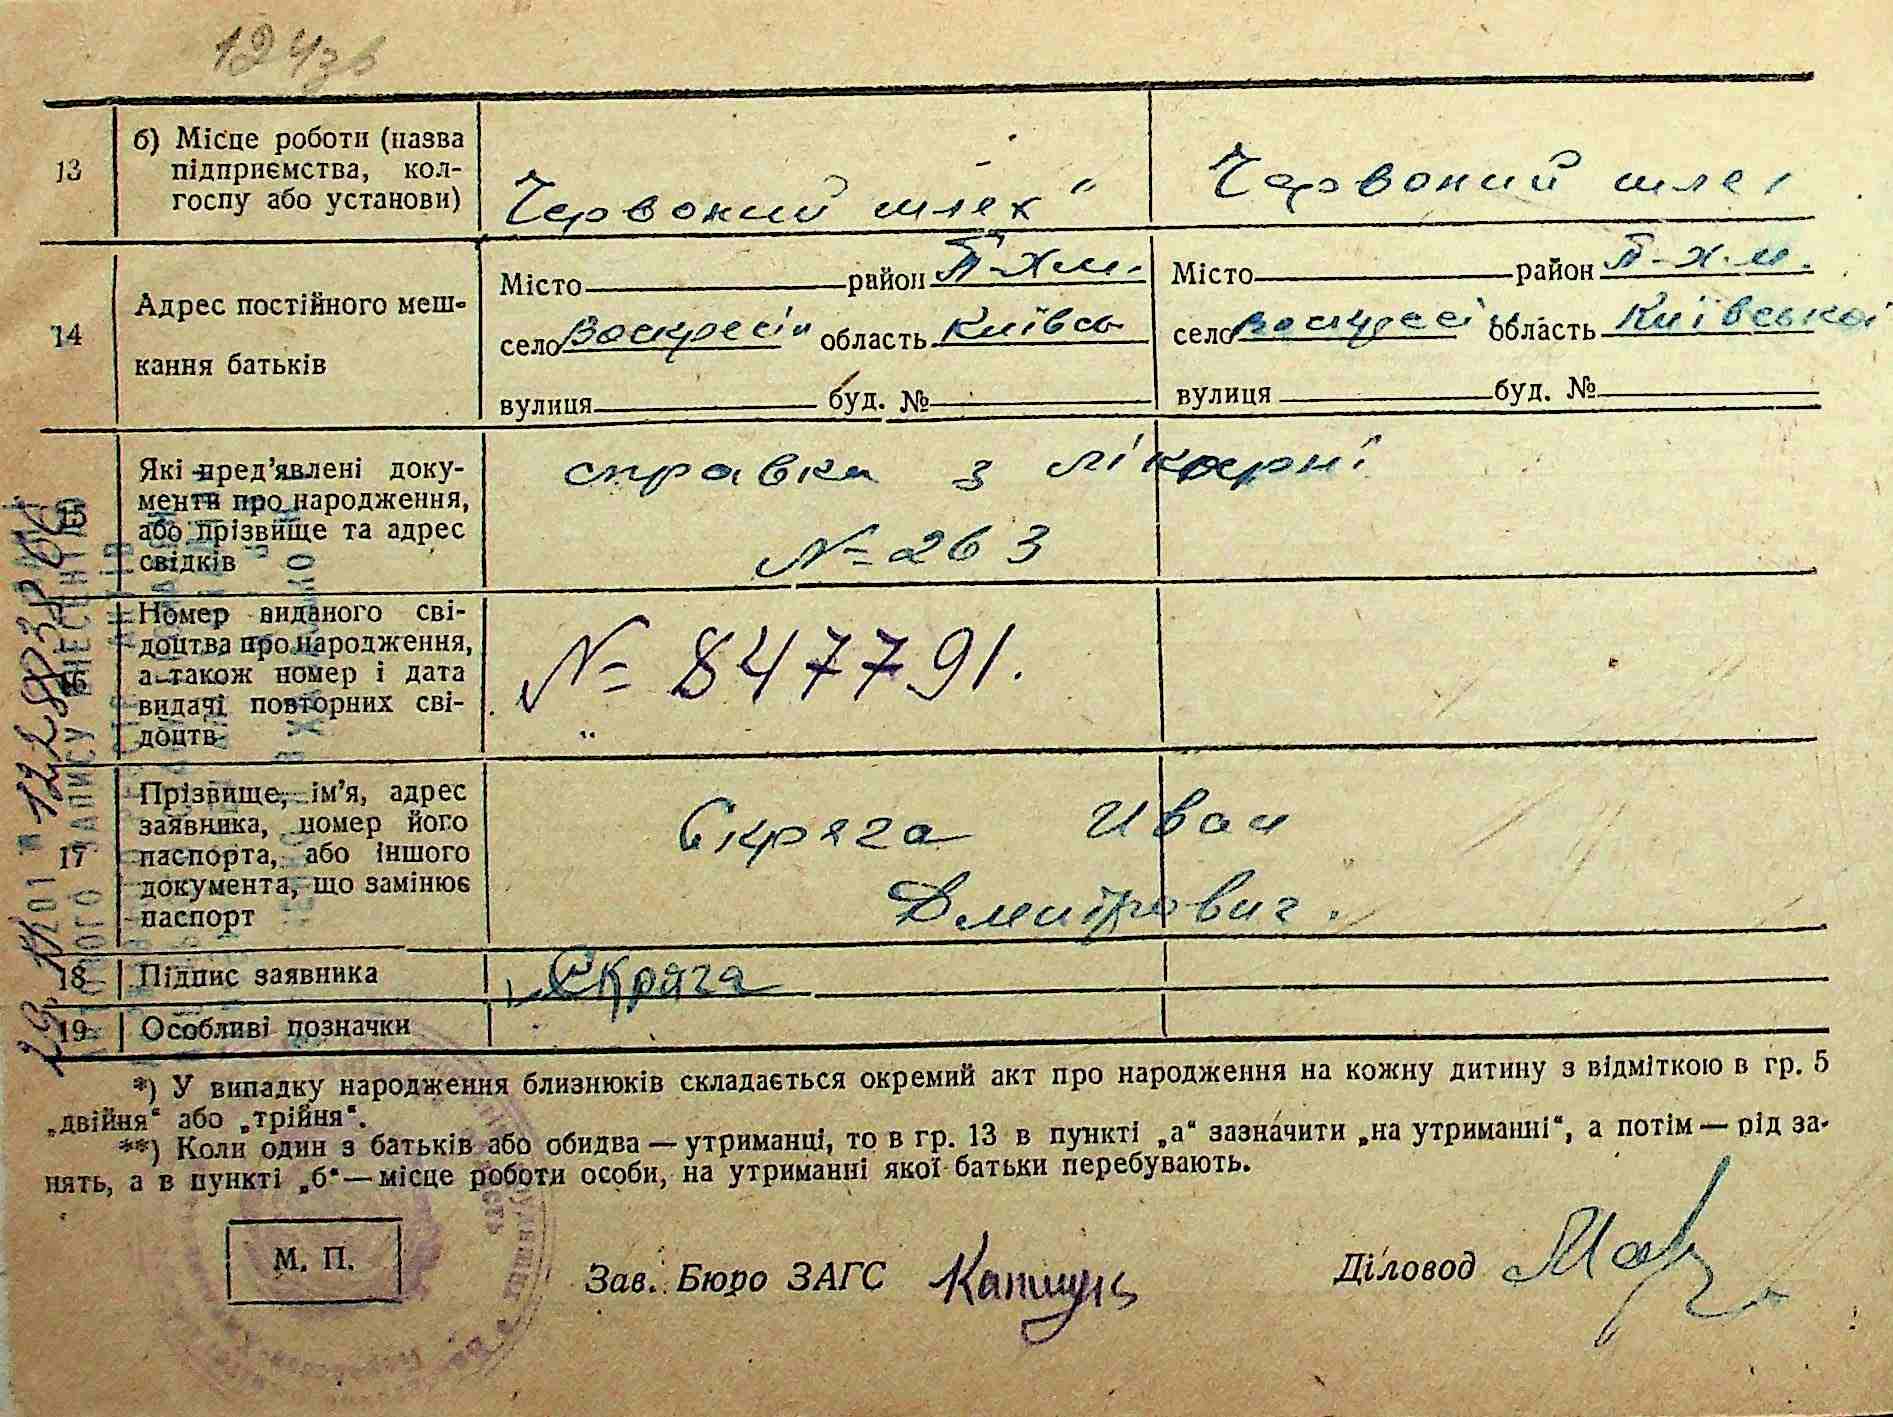 13
б) Місце роботи (назва
підприємства, кол-
госпу або установи)
Червоний шлях"
Червоний шлях
14
Адрес постійного меш-
кання батьків
Місто район П-Хм.
село Воскресін область Київсь
вулиця буд. №
Місто район П-Х.м.
село область Київської
вулиця буд. №
15
Які пред'явлені доку-
менти про народження,
або прізвище та адрес
свідків
справка з лікарні
№ 263
16
Номер виданого сві-
доцтва про народження,
а також номер і дата
видачі повторних сві-
доцтв
№ 847791.
17
Прізвище, ім'я, адрес
заявника, номер його
паспорта, або іншого
документа, що замінює
паспорт
Скряга Иван
Дмитрович.
18
Підпис заявника
Скряга
19
Особливі позначки
*) У випадку народження близнюків складається окремий акт про народження на кожну дитину з відміткою в гр. 5
„двійня“ або „трійня“.
**) Коли один з батьків або обидва — утриманці, то в гр. 13 в пункті „а“ зазначити „на утриманні“, а потім — рід за-
нять, а в пункті „б“ — місце роботи особи, на утриманні якої батьки перебувають.
М. П.
Зав. Бюро ЗАГС
Діловод